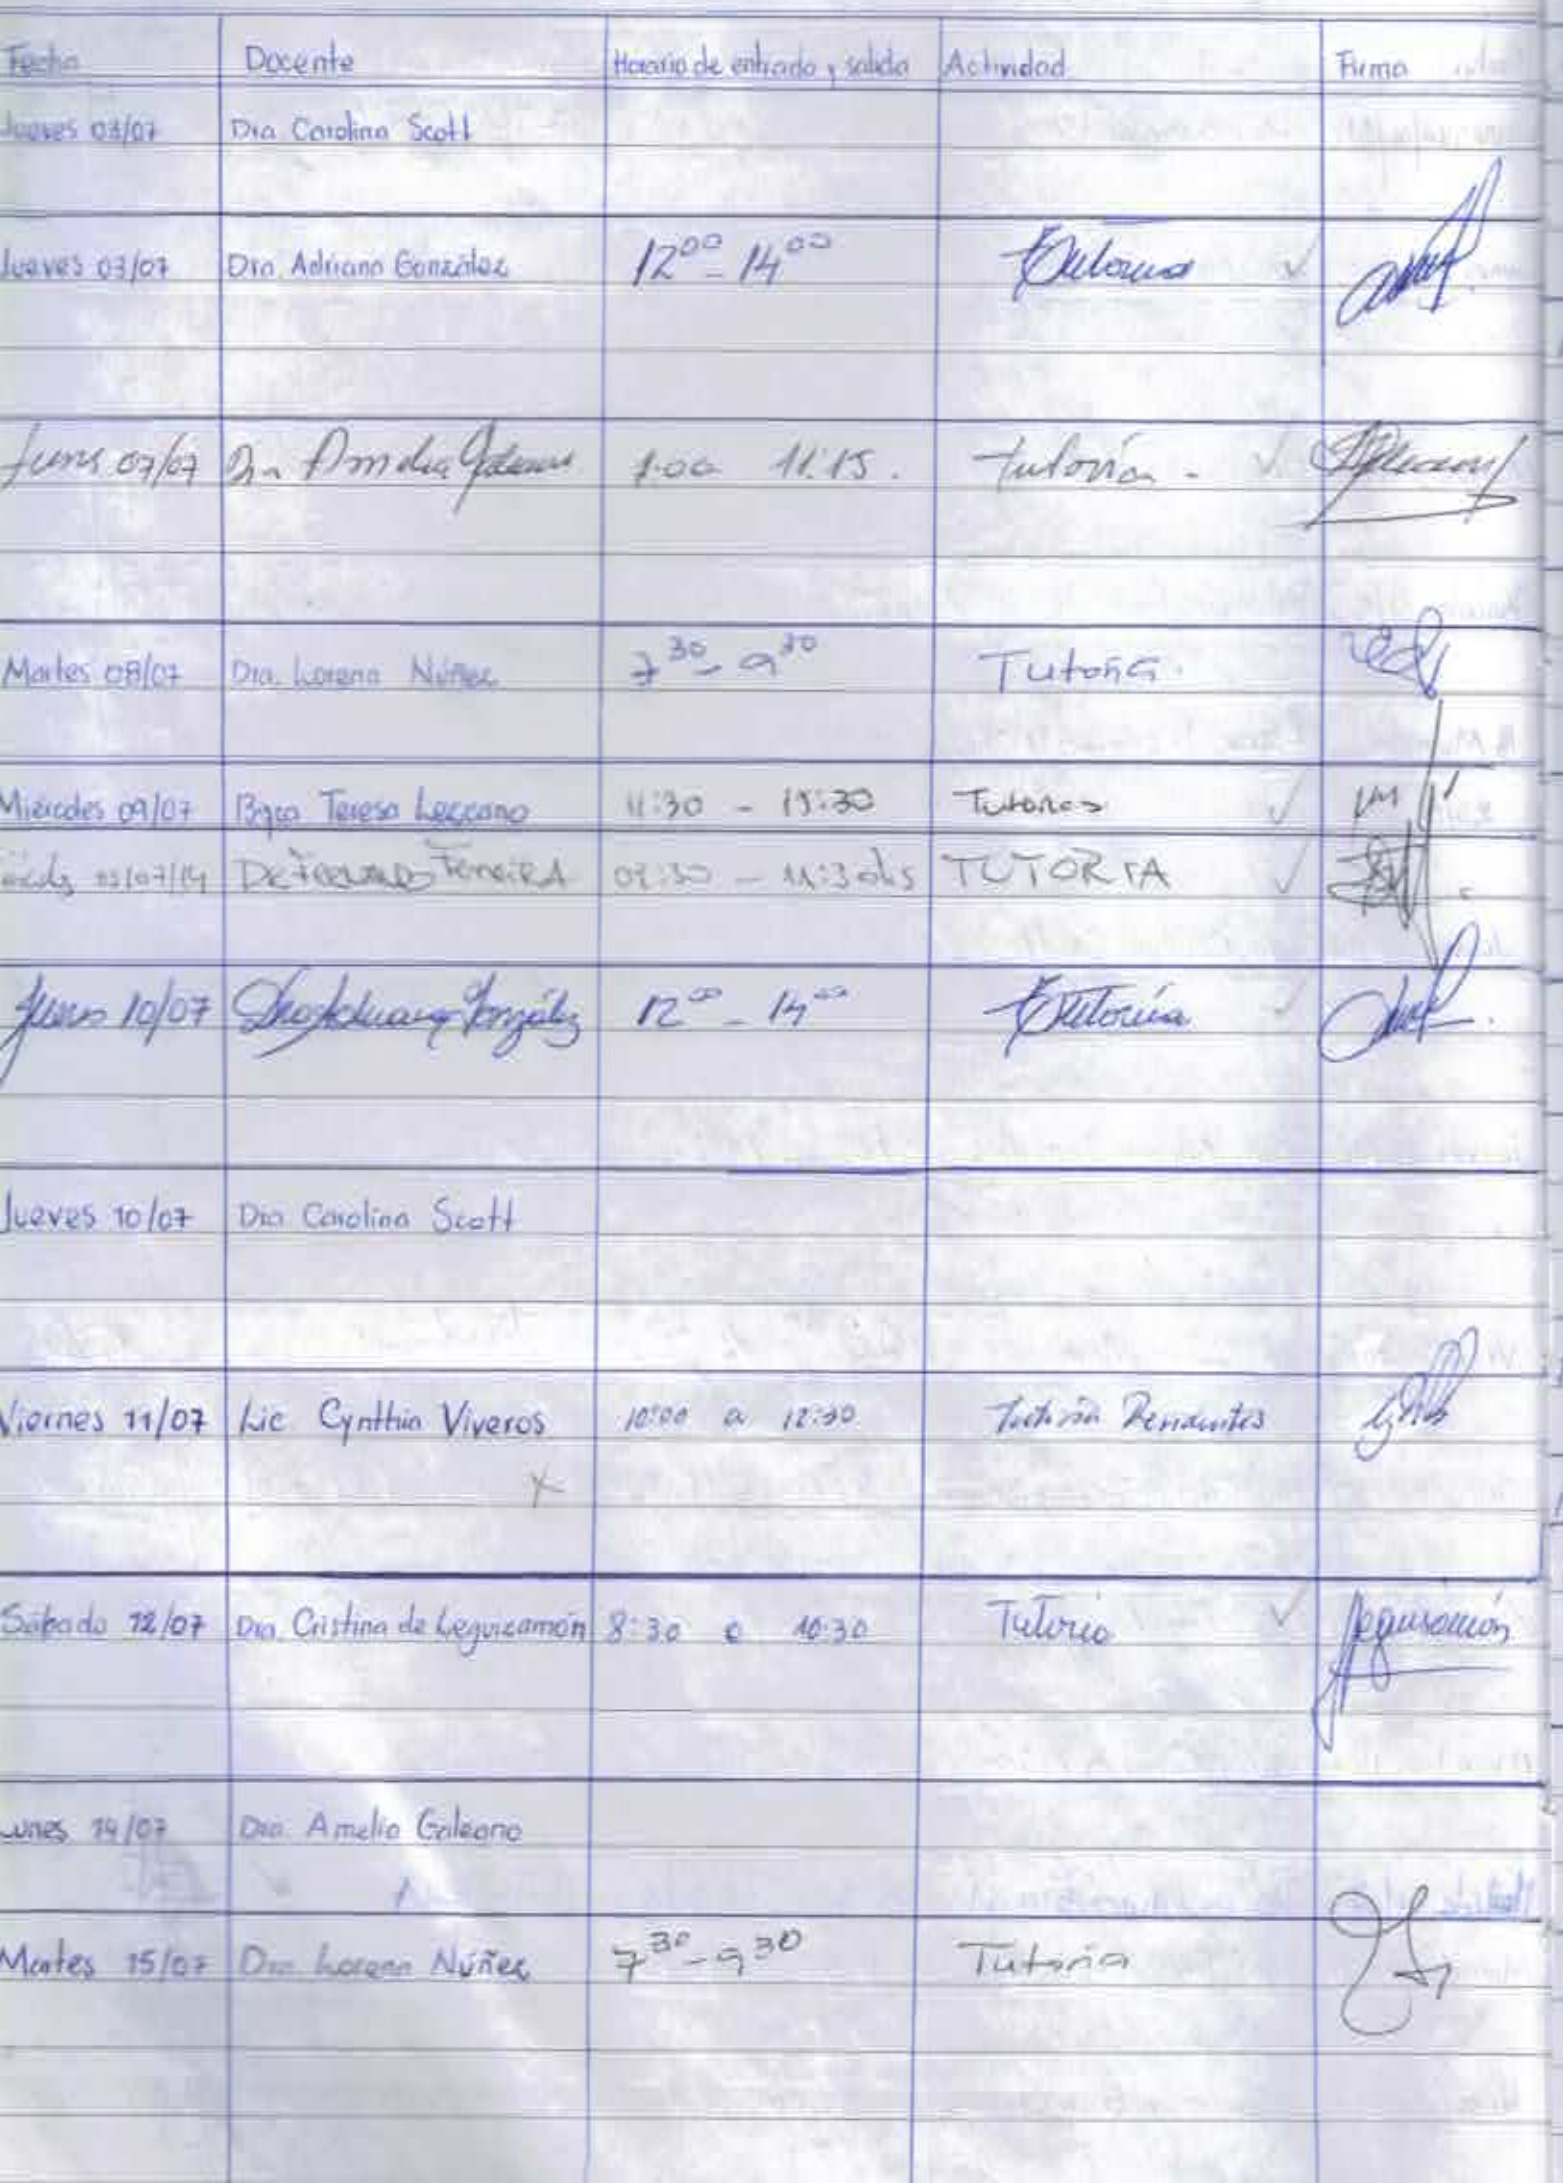 Fecha Docente Horario de entrada y salida Actividad Firma
Jueves 03/07 Dra Carolina Scott
Jueves 03/07 Dra Adriana González 12⁰⁰ - 14⁰⁰ Tutoria
07/07 Dra Amelia 11:15. Tutoría -
Martes 08/07 Dra. Lorena Núñez 7³⁰ - 9³⁰ Tutoría.
Miércoles 09/07 Teresa Lezcano 11:30 - 15:30 Tutorias
/07/14 Ferreira - 11:30 hs TUTORIA
10/07 González 12⁰⁰ - 14⁰⁰ Tutoría
Jueves 10/07 Dra Carolina Scott
Viernes 11/07 Lic Cynthia Viveros 10:00 a 12:30 Tutoría
x
Sábado 12/07 Dra. Cristina de Leguizamón 8:30 a 10:30 Tutoria Leguisamón
Lunes 14/07 Dra. Amelia Galeano
Martes 15/07 Dra Lorena Núñez 7³⁰ - 9³⁰ Tutoria